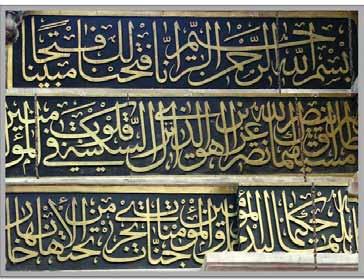 بسم الله الرحمن الرحيم انا فتحنا لك فتحا مبينا
مستقيما وينصرك الله نصرا عزيزا هو الذي انزل السكينة في قلوب المؤمنين
الله عليما حكيما ليدخل المؤمنين والمؤمنات جنات تجري من تحتها الأنهار